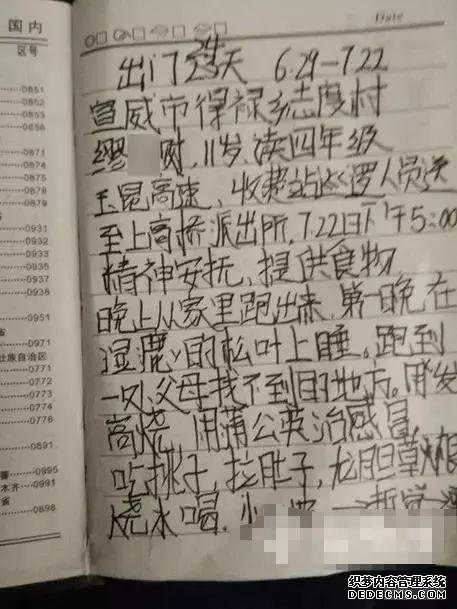 国内
区号
0851
0852
0853
0856
0871
0874
0875
0876
0878
0879
0931
0932
0933
0935
0937
0938
0951
省
壮族自治区
0771
0772
0773
0774
0776
0891
0995
木齐 0991
省
0898
Date
出门23天 6.29-7.22
宣威市得禄乡志度村
缪 财, 11岁, 读四年级
玉昆高速, 收费站巡逻人员送
至上高桥派出所, 7.22日下午5:00
精神安抚, 提供食物
晚上从家里跑出来, 第一晚在
湿鹿的松叶上睡。跑到
一处父母找不到目的地方。用发
高烧 用蒲公英治感冒,
吃桃子, 拉肚子, 龙胆草根
烧水喝.
织梦内容管理系统
DEDECMS.COM